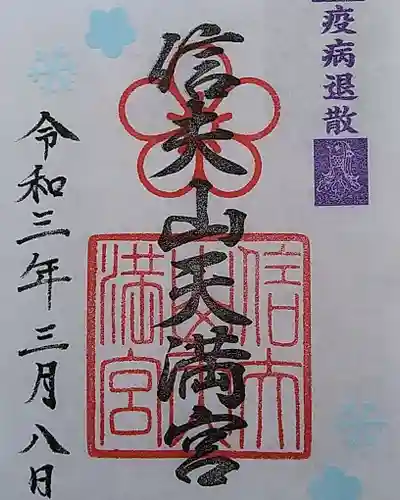 疫病退散
信夫山天満宮
令和三年三月八日
信夫山天満宮